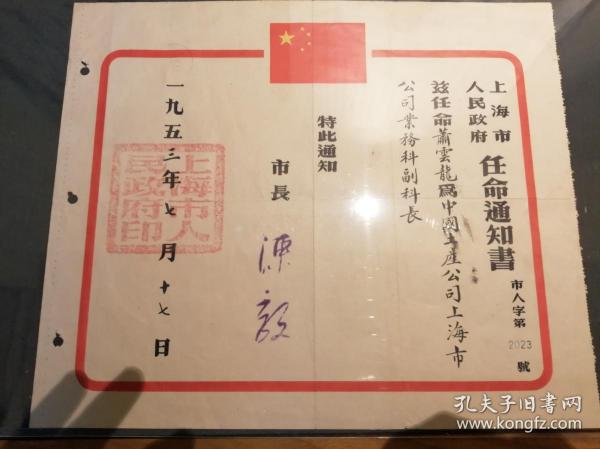 上海市
人民政府
任命通知書
市人字第2023號
兹任命蕭雲龍爲中國土產公司上海市
公司業務科副科長
特此通知
市長
陳毅
上海市人
民政府印
一九五三年七月十七日
孔夫子旧书网
www.kongfz.com